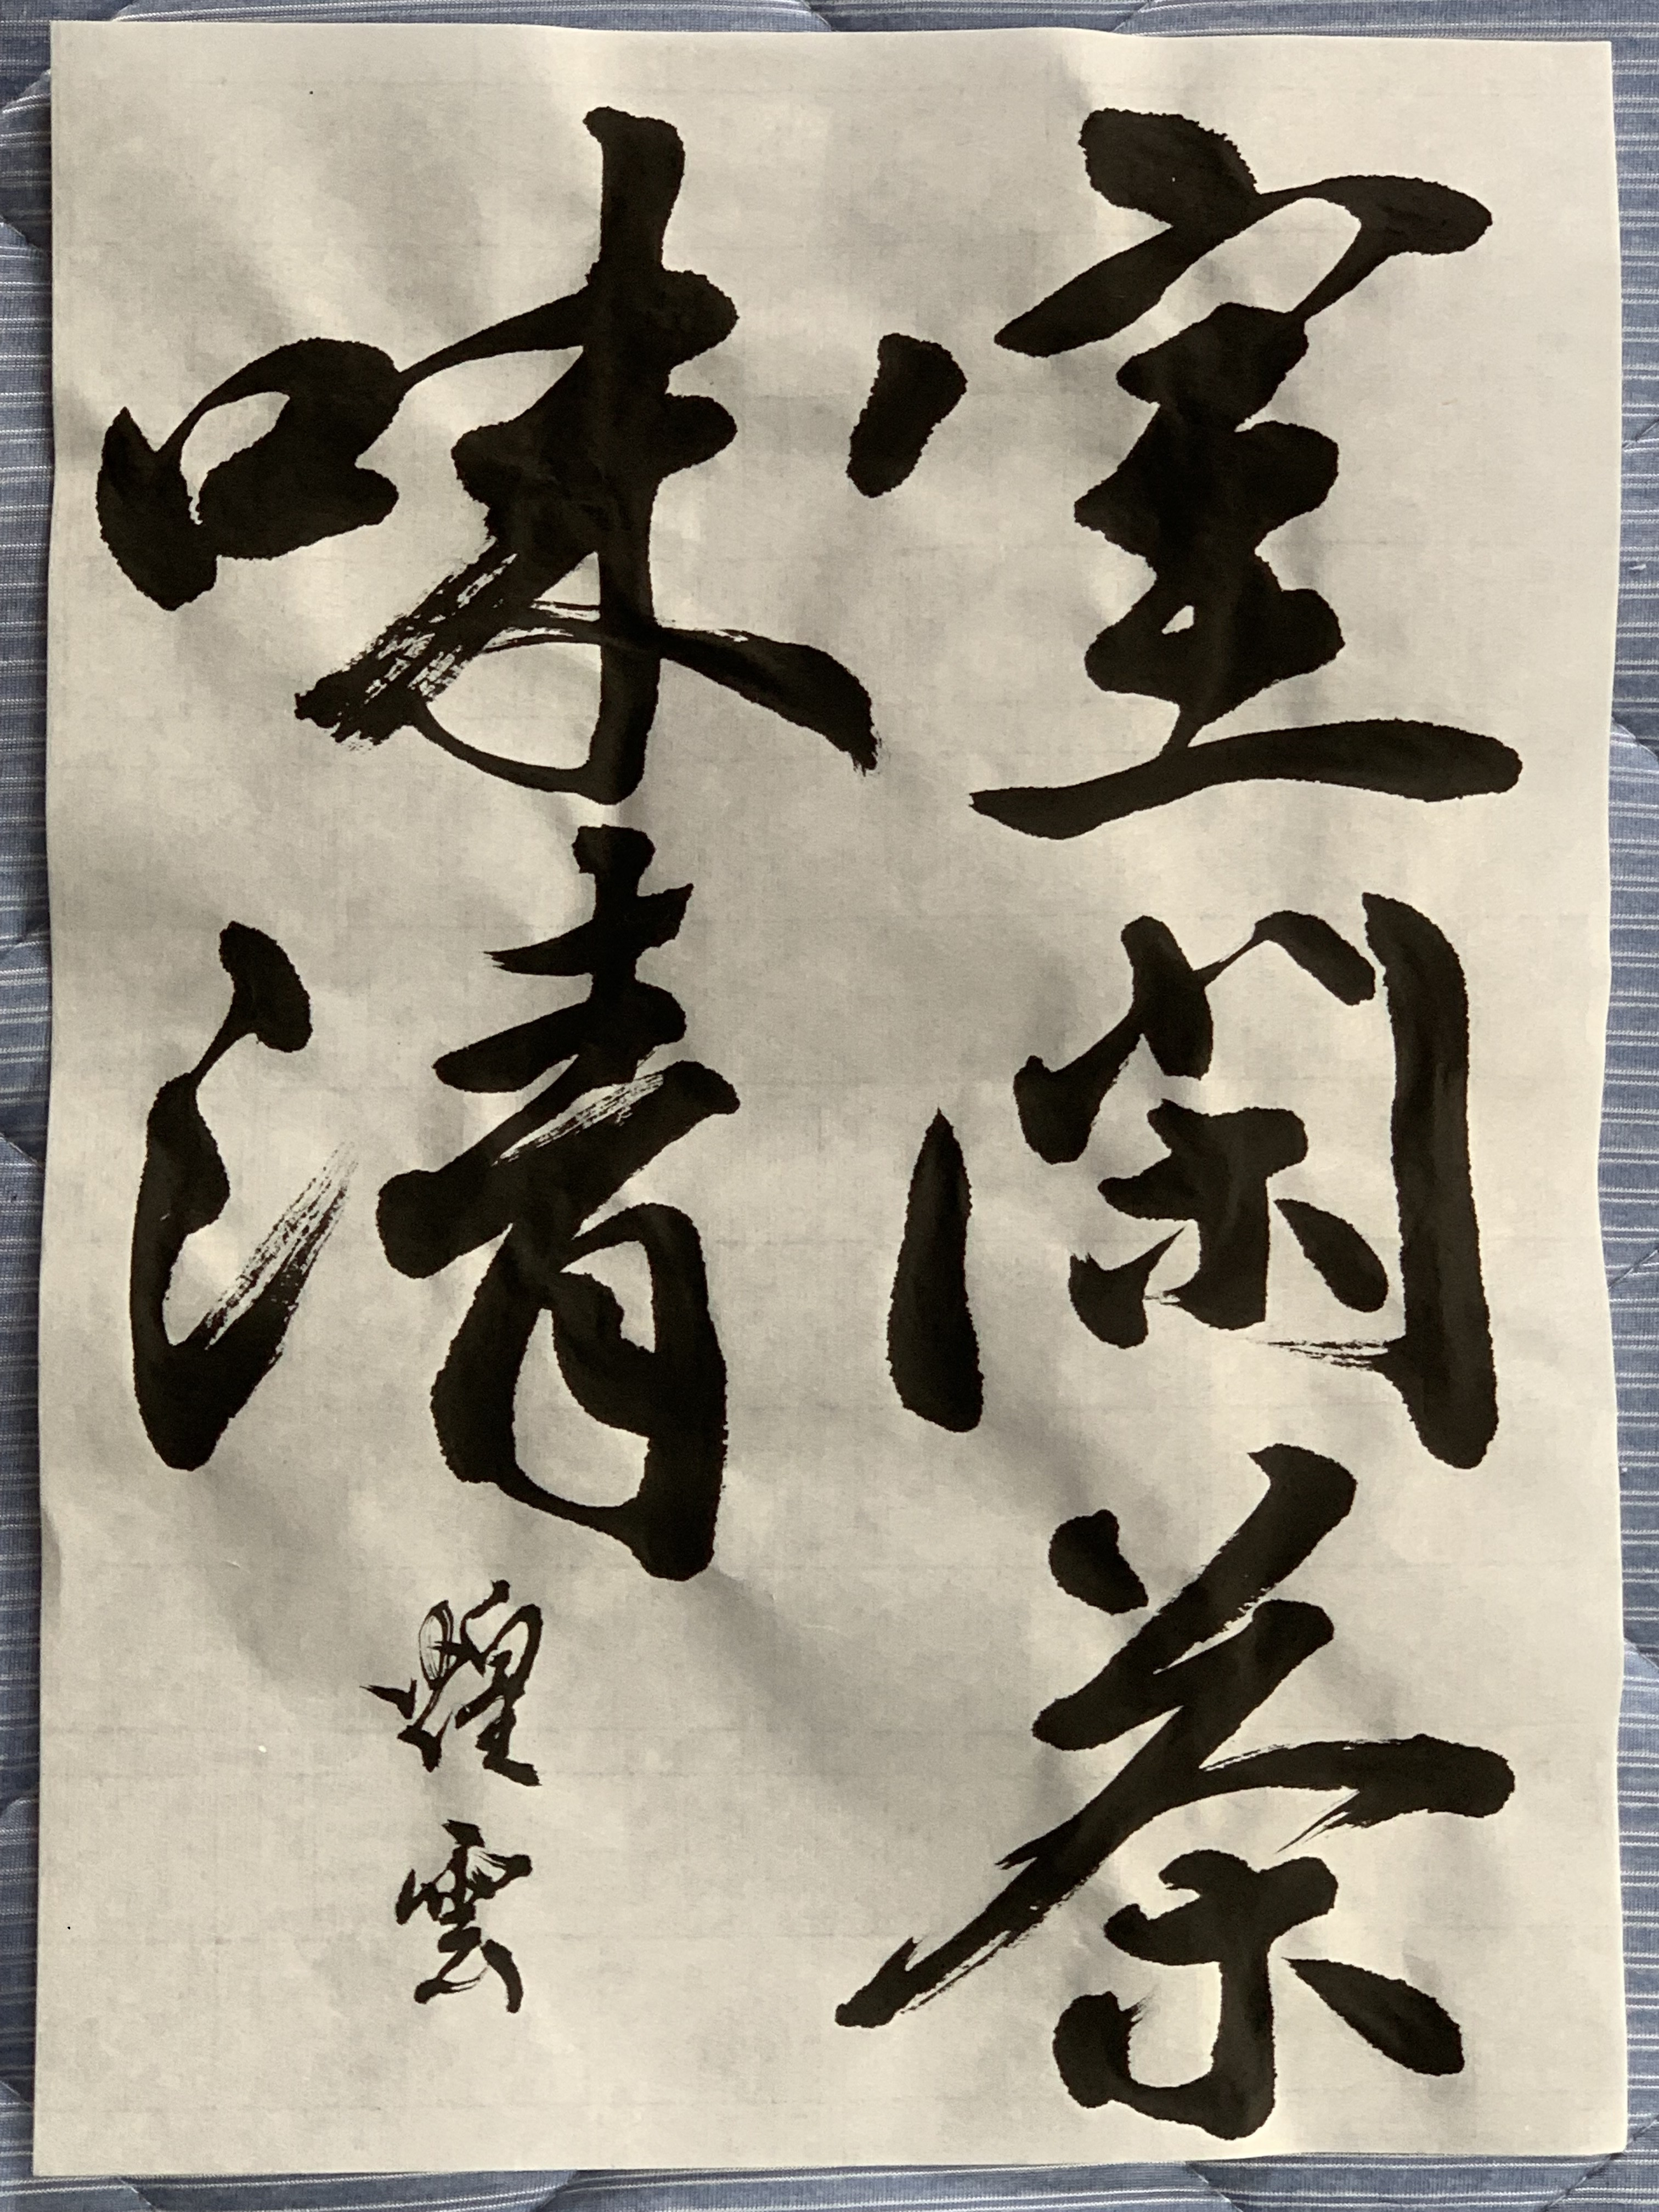 室閑茶
味清
煌雲